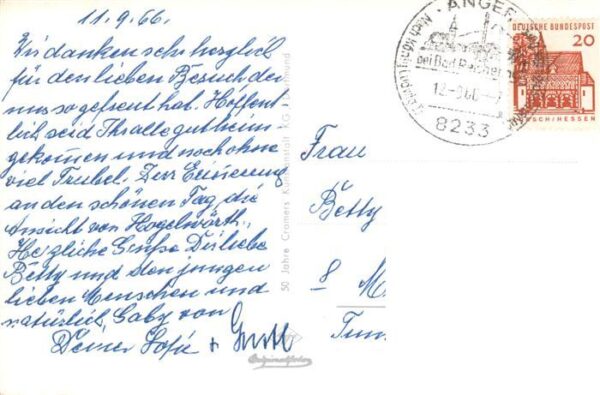 11.9.66.
Wir danken sehr herzlich
für den lieben Besuch der
uns so gefreut hat. Hoffent
lich seid Ihr alle gut heim-
gekommen und noch ohne
viel Trubel. Zur Erinerung
an den schönen Tag die
Ansicht von Högelwörth.
Herzliche Grüße Dir liebe
Betty und den jungen
lieben Menschen und
natürlich Gaby von
Deiner Sofie +
50 Jahre Cramers Kunstanstalt KG
Originalfoto
ANGER
bei Bad Reichen
12.-966.-
8233
DEUTSCHE BUNDESPOST
20
LORSCH/HESSEN
Frau
Betty
8 M